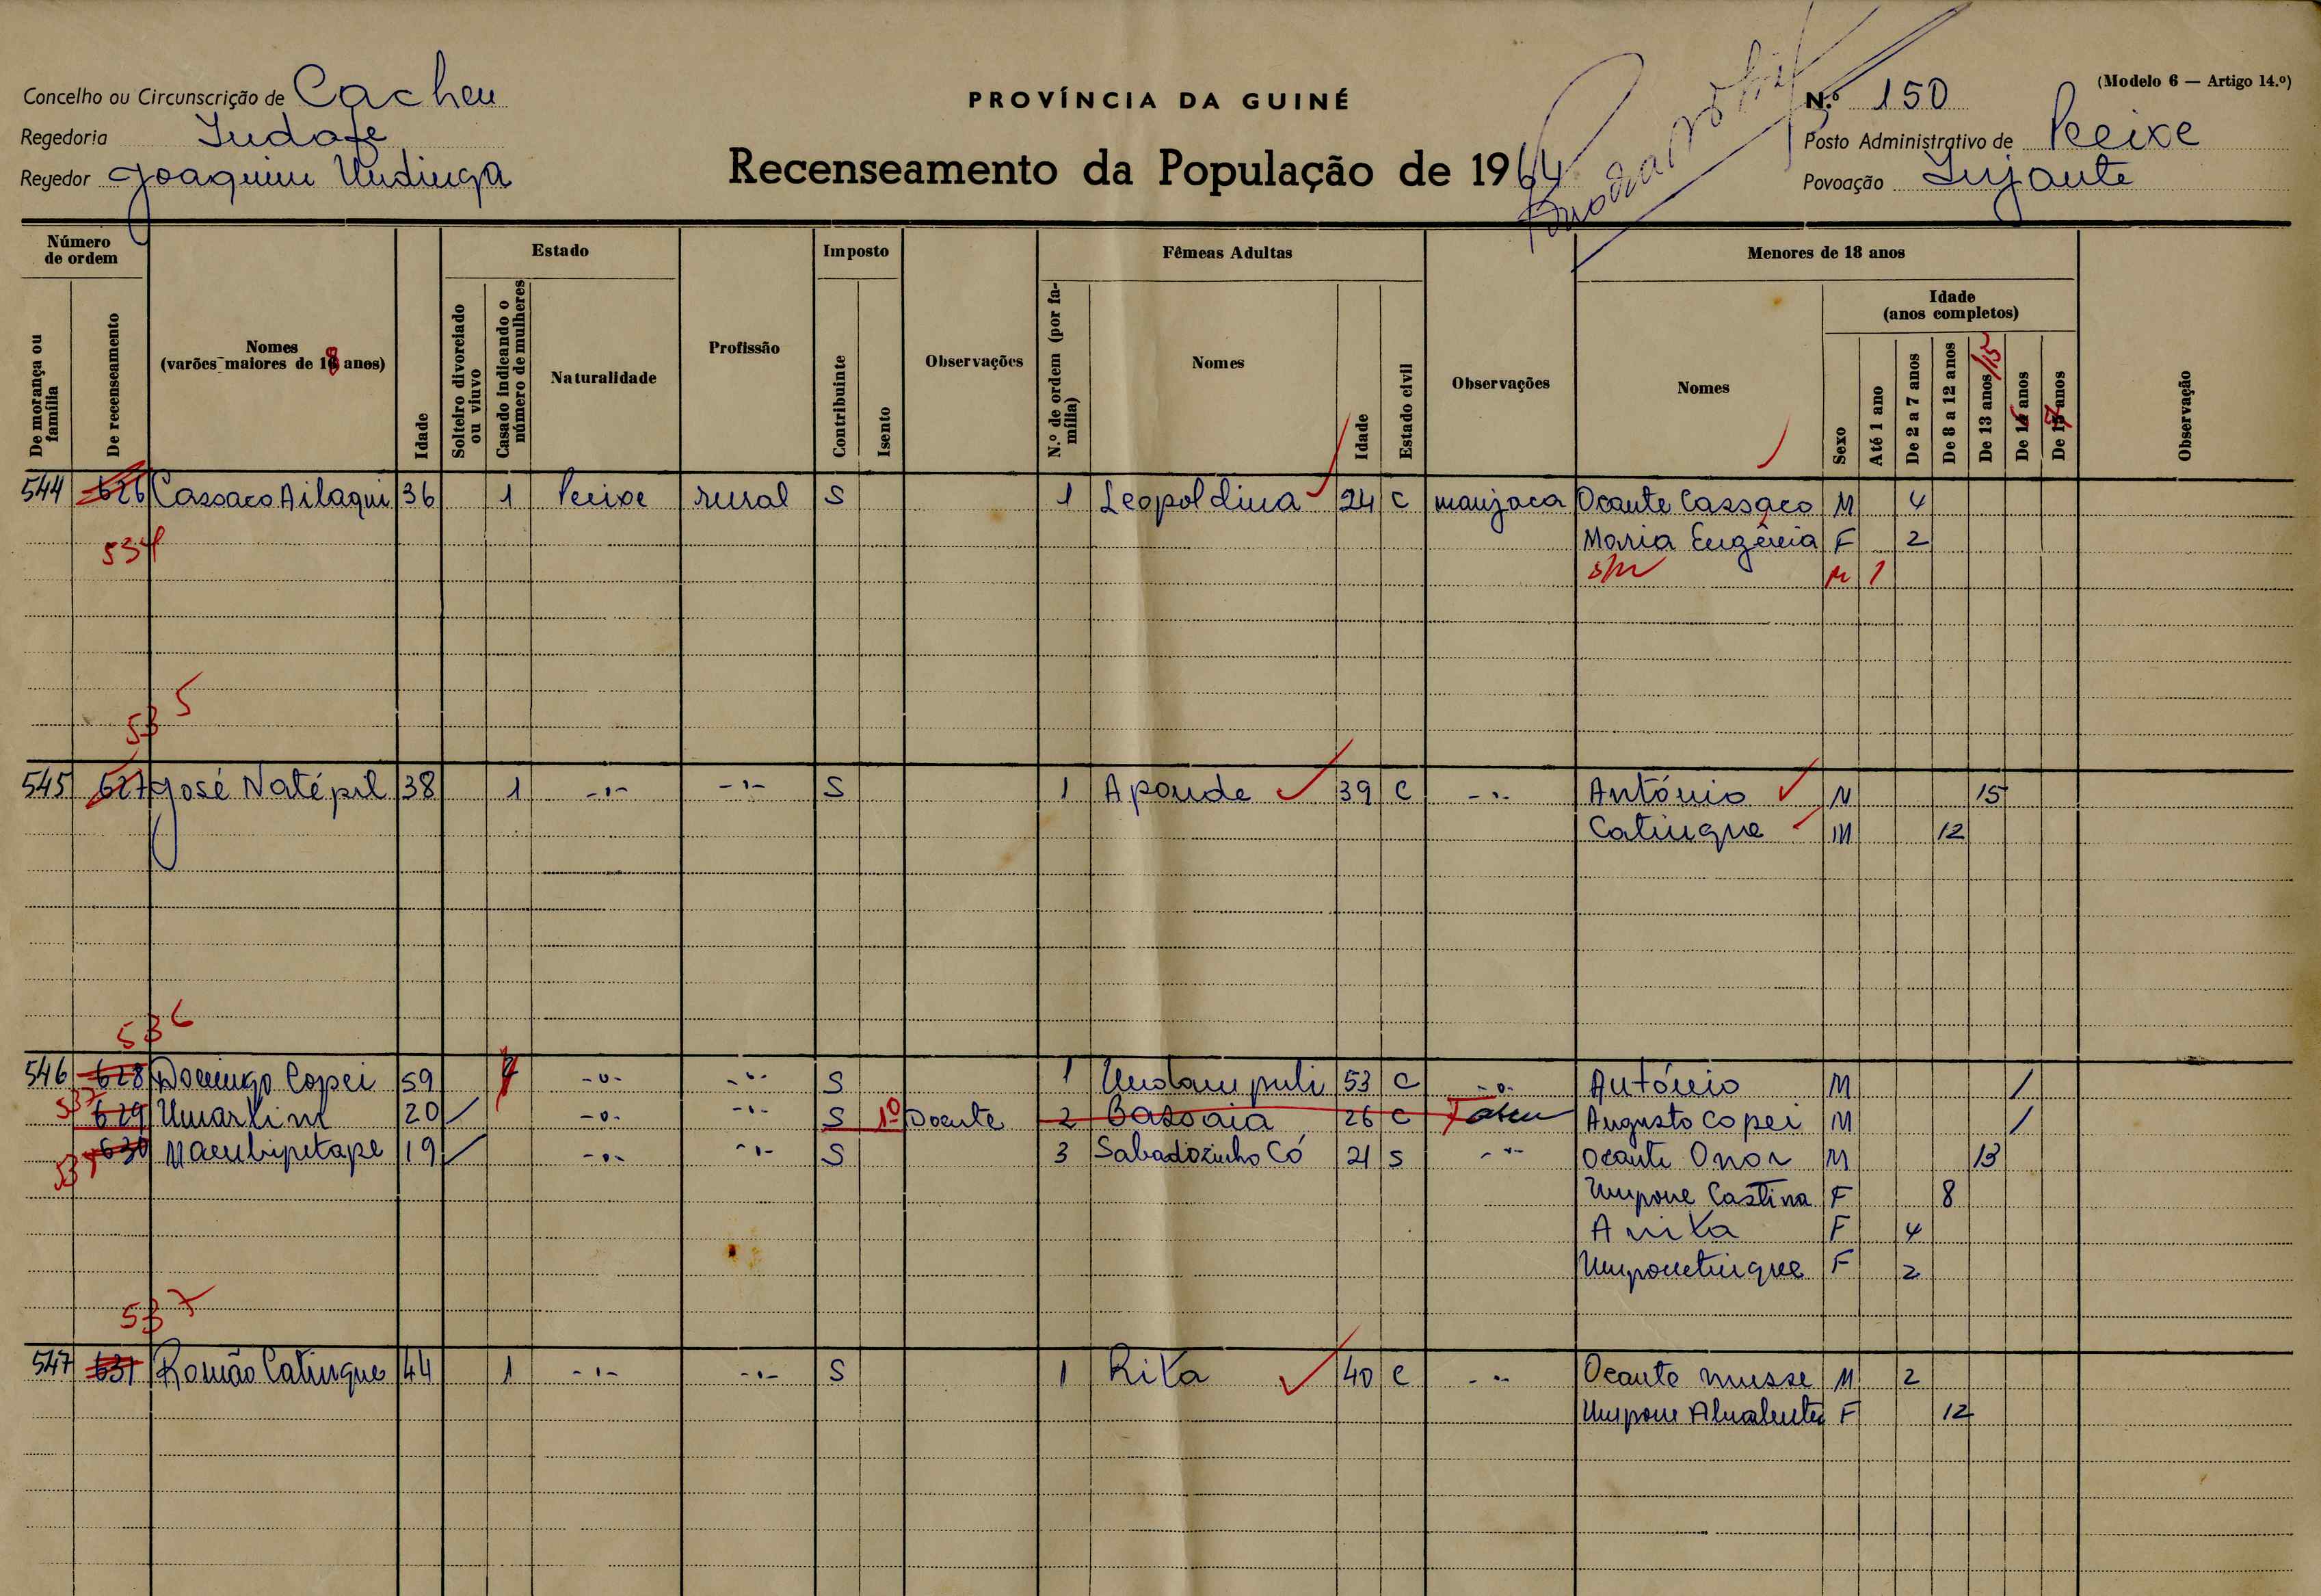 Concelho ou Circunscrição de Cacheu
Regedoria
Regedor Joaquim Undinga
PROVÍNCIA DA GUINÉ
Recenseamento da População de 1964
(Modelo 6 — Artigo 14.º)
N.º 150
Posto Administrativo de Peixe
Povoação Jujante
Número de ordem
De morança ou família
De recenseamento
Nomes (varões maiores de 18 anos)
Idade
Estado
Solteiro divorciado ou viuvo
Casado indicando o número de mulheres
Naturalidade
Profissão
Imposto
Contribuinte
Isento
Observações
Fêmeas Adultas
N.º de ordem (por família)
Nomes
Idade
Estado civil
Observações
Menores de 18 anos
Nomes
Idade (anos completos)
Sexo
Até 1 ano
De 2 a 7 anos
De 8 a 12 anos
De 13 anos /15
De 16 anos
De 17 anos
Observação
544 626 Cassaco Ailaqui 36 1 Peixe rural S 1 Leopoldina 24 C manjaca Ocante Cassaco M 4
534 Maria Eugêneia F 2
s/n M 1
535
545 627 José Natépil 38 1 -"- -"- S 1 Aponde 39 C -"- António M 15
Catinque M 12
536
546 628 Domingo Copei 59 -"- -"- S 1 53 C -"- António M /
629 Umartim 20 -"- -"- S 1º Doente 2 Bassaia 26 C Augusto Copei M /
630 19 -"- -"- S 3 Sabadozinho Có 21 S -"- Ocante Onor M 13
Umpone Castina F 8
Anita F 4
Umponetinque F 2
537
547 631 Romão Catinque 44 1 -"- -"- S 1 Rita 40 C -"- Ocante musse M 2
Umpone F 12